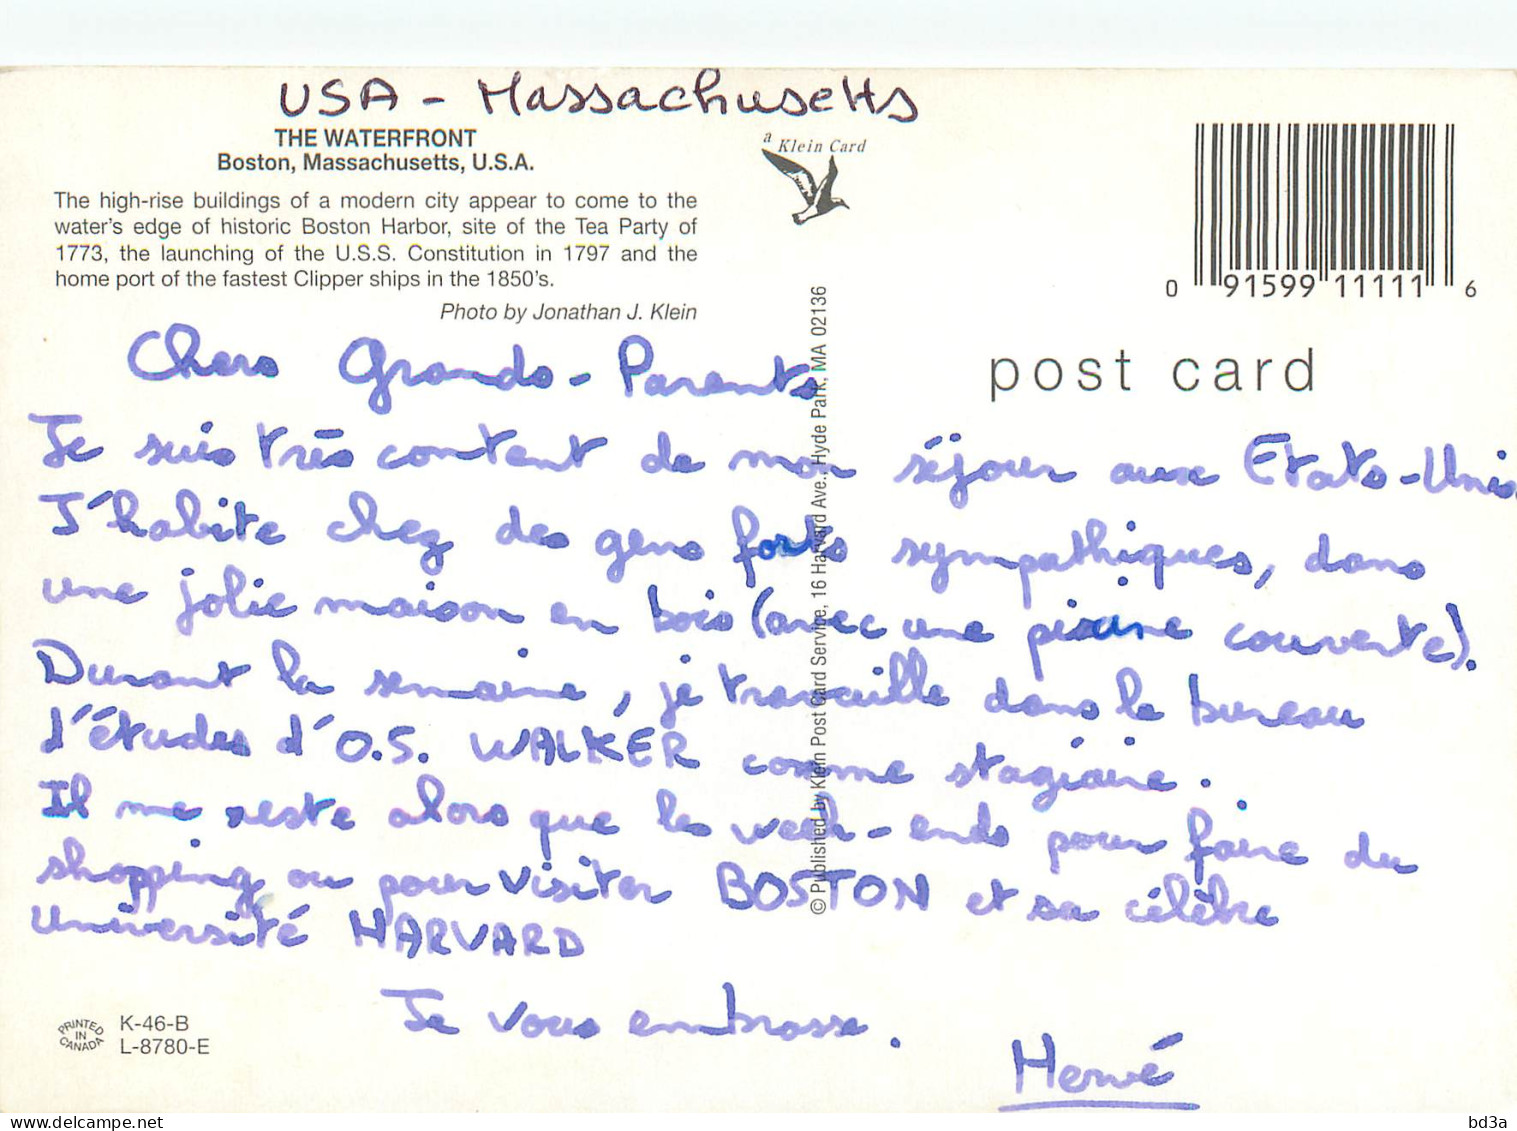 USA - Massachusetts
THE WATERFRONT
Boston, Massachusetts, U.S.A.
The high-rise buildings of a modern city appear to come to the
water's edge of historic Boston Harbor, site of the Tea Party of
1773, the launching of the U.S.S. Constitution in 1797 and the
home port of the fastest Clipper ships in the 1850's.
Photo by Jonathan J. Klein
a Klein Card
0 91599 11111 6
post card
© Published by Klein Post Card Service, 16 Harvard Ave., Hyde Park, MA 02136
Chers Grands-Parents
Je suis très content de mon séjour aux Etats-Unis.
J'habite chez des gens forts sympathiques, dans
une jolie maison en bois (avec une piscine couverte).
Durant la semaine, je travaille dans le bureau
d'études d'O.S. WALKER comme stagiaire.
Il me reste alors que les week-ends pour faire du
shopping ou pour visiter BOSTON et sa célèbre
université HARVARD
Je vous embrasse.
Hervé
PRINTED IN CANADA
K-46-B
L-8780-E
www.delcampe.net
bd3a